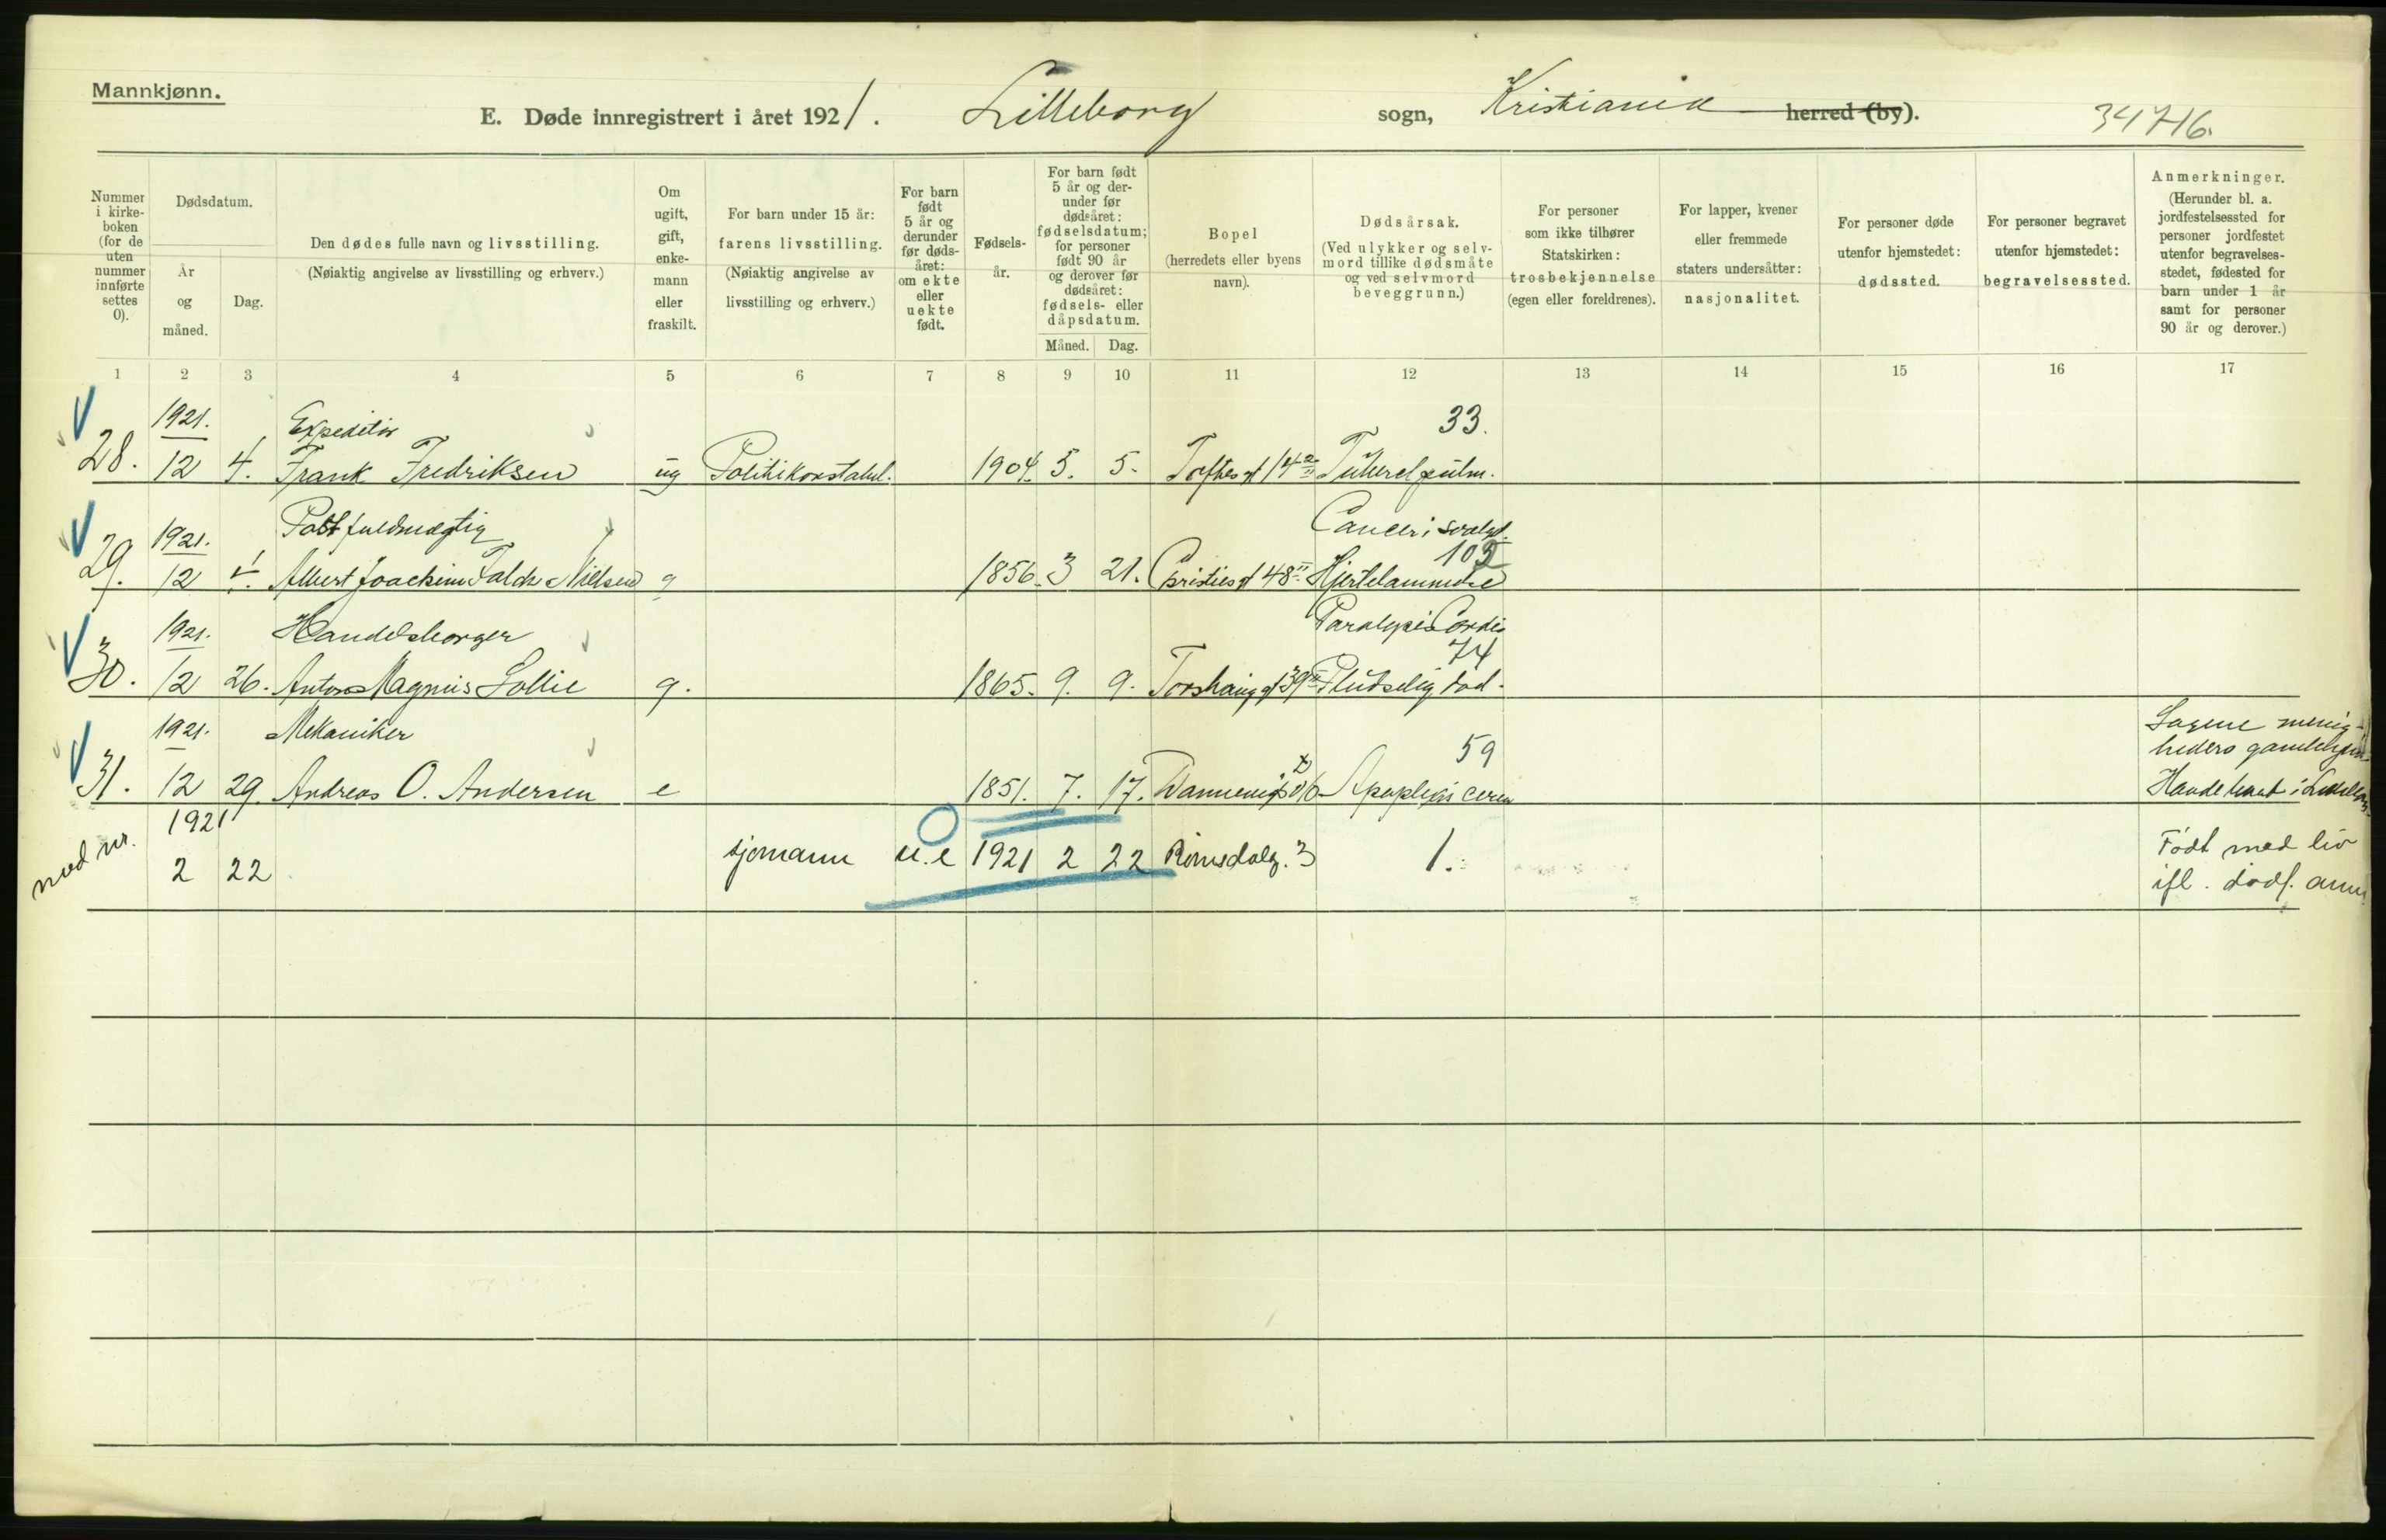 Mannkjønn.
E. Døde innregistrert i året 1921. Lilleborg sogn, Kristiania herred (by). 34716.
Nummer i kirke-boken (for de uten nummer innførte settes 0).
Dødsdatum.
År og måned.
Dag.
Den dødes fulle navn og livsstilling.
(Nøiaktig angivelse av livsstilling og erhverv.)
Om ugift, gift, enke-mann eller fraskilt.
For barn under 15 år: farens livsstilling.
(Nøiaktig angivelse av livsstilling og erhverv.)
For barn født 5 år og derunder før døds-året: om ekte eller uekte født.
Fødsels-år.
For barn født 5 år og der-under før dødsåret: fødselsdatum; for personer født 90 år og derover før dødsåret: fødsels- eller dåpsdatum.
Måned. Dag.
Bopel
(herredets eller byens navn).
Dødsårsak.
(Ved ulykker og selv-mord tillike dødsmåte og ved selvmord beveggrunn.)
For personer som ikke tilhører Statskirken: trosbekjennelse (egen eller foreldrenes).
For lapper, kvener eller fremmede staters undersåtter: nasjonalitet.
For personer døde utenfor hjemstedet: dødssted.
For personer begravet utenfor hjemstedet: begravelsessted.
Anmerkninger.
(Herunder bl. a. jordfestelsessted for personer jordfestet utenfor begravelses-stedet, fødested for barn under 1 år samt for personer 90 år og derover.)
1 2 3 4 5 6 7 8 9 10 11 12 13 14 15 16 17
1921. Expeditør 33.
28. 12 4. Frank Fredriksen ug Politikonstabel. 1904. 5. 5. Toftesgt 14 II Tubercl pulm.
1921. Postfuldmægtig Cancer i
29. 12 Albert Joachim Falck Nielsen g 1856. 3 21. Christies gt 48 II Hjertelammelse
1921. Handelsborger Paralysis Cordis
74
30. 12 26. Anton Magnus Lollie g. 1865. 9. 9. Torshauggt 39 II Pludselig død.
1921. Mekaniker 59 Sagene menig-
heders gamlehjem
31. 12 29. Andreas O. Andersen e 1851. 7. 17. Apoplexis cereb
1921
2 22 sjømann u.e 1921 2 22 Romsdalg. 3 1. Født med liv
ifl. dødf. anm